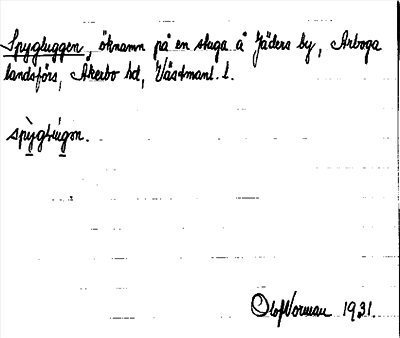 Spygluggen, öknamn på en stuga å Jäders by, Arboga
landsförs, Åkerbo hd, Västmanl. l.
Olof Norman 1931.